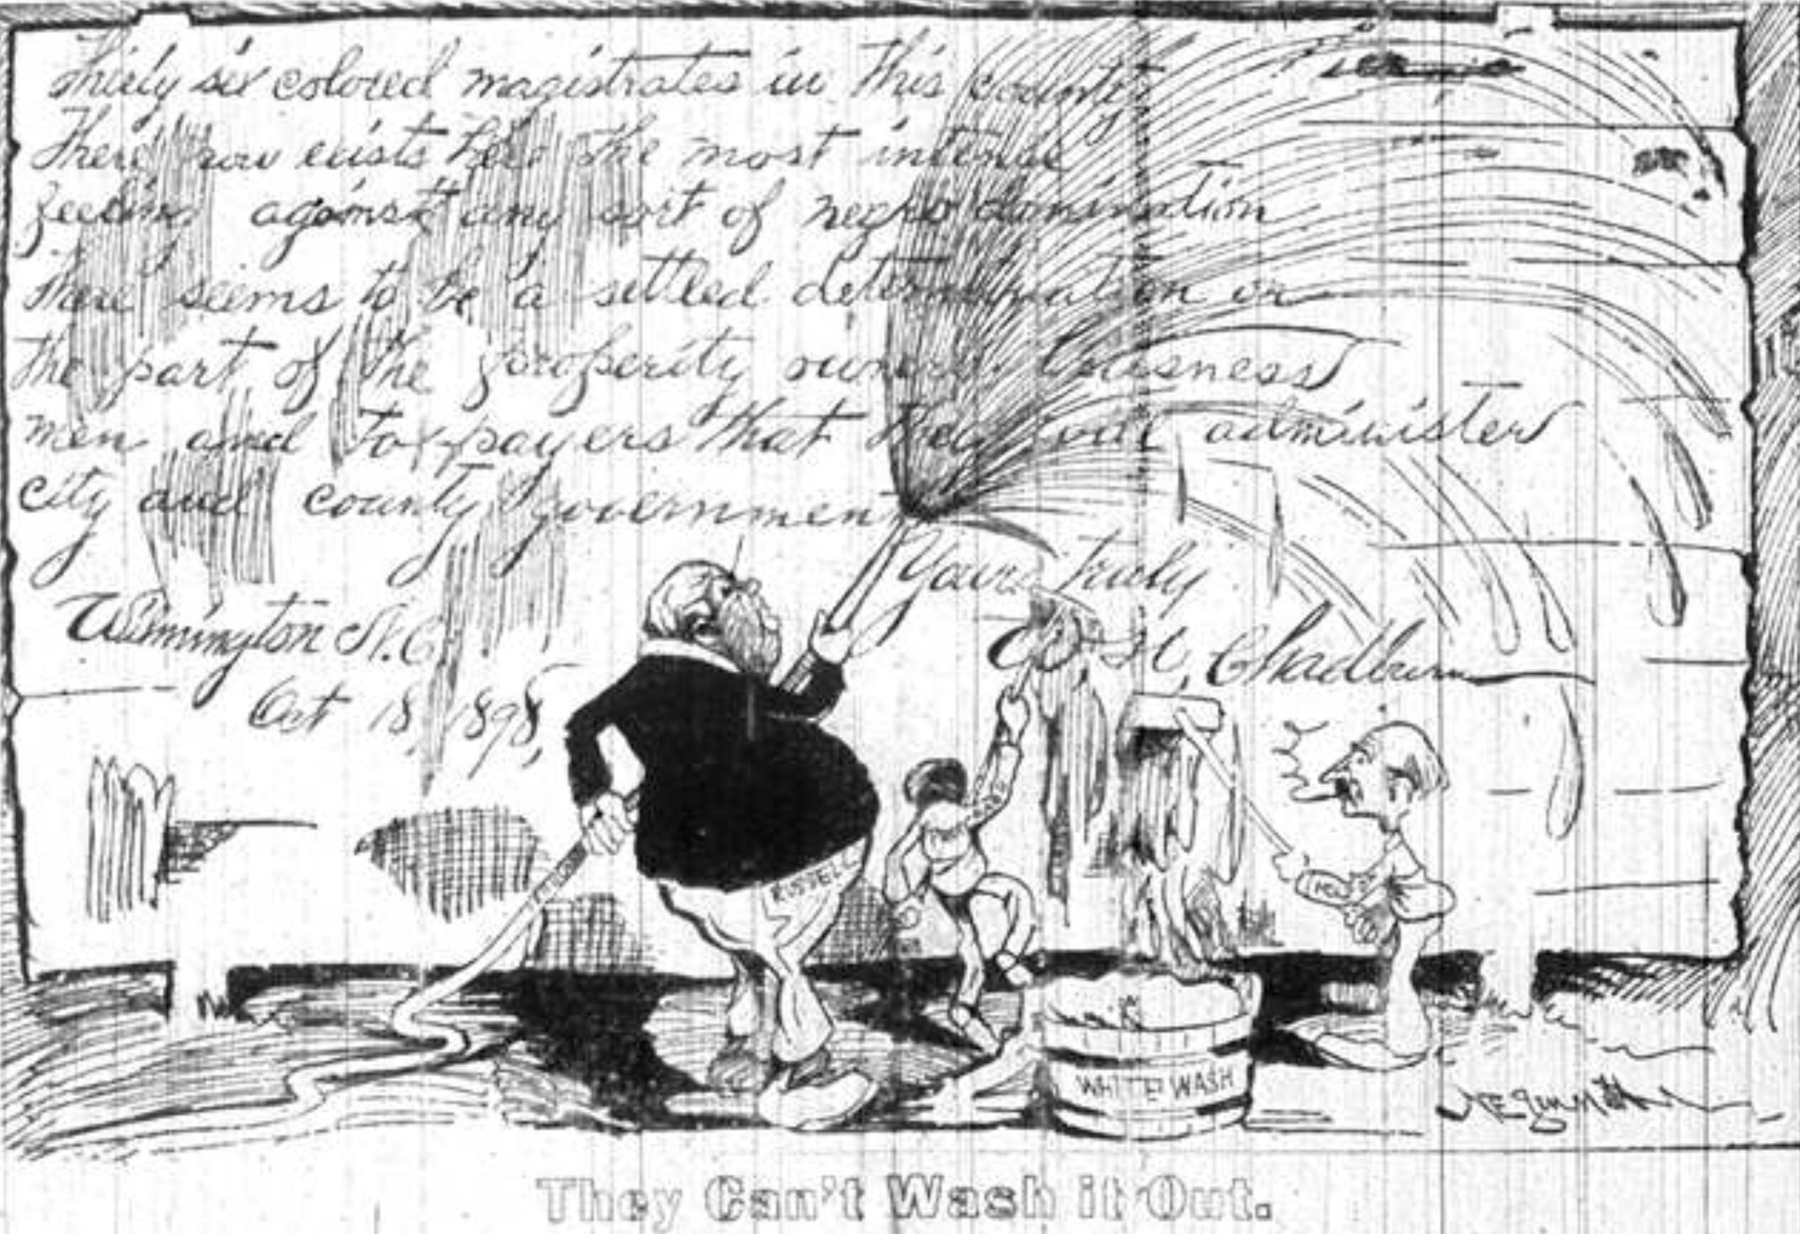 Thirty six colored magistrates in this county
There now exists here the most intense
feeling against any sort of negro domination
There seems to be a settled determination on
the part of the properity owners business
men and tax payers that they will administer
city and county government
Yours truly
W. H. Chadburn
Wilmington N.C.
Oct 18, 1898,
RUSSELL
WHITE WASH
They Can't Wash it Out.